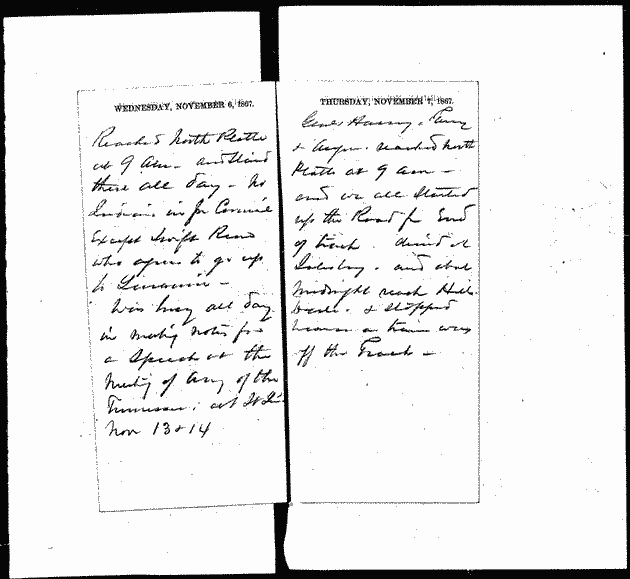 WEDNESDAY, NOVEMBER 6, 1867.
Reached North Platte
at 9 am - and
there all day - No
Indians in for Council
Except Swift Bear
who agrees to go up
to Laramie -
Was busy all day
in making notes for
a Speech at the
Meeting of Army of the
Tennessee, at St
Nov 13 & 14
THURSDAY, NOVEMBER 7, 1867.
Genls Harney, Terry
& Augur. reached North
Platte at 9 am -
and we all Started
up the Road for End
of track. dined at
Julesburg. and about
Midnight reach Hills
Dale. & Stopped
because a train was
off the Track -